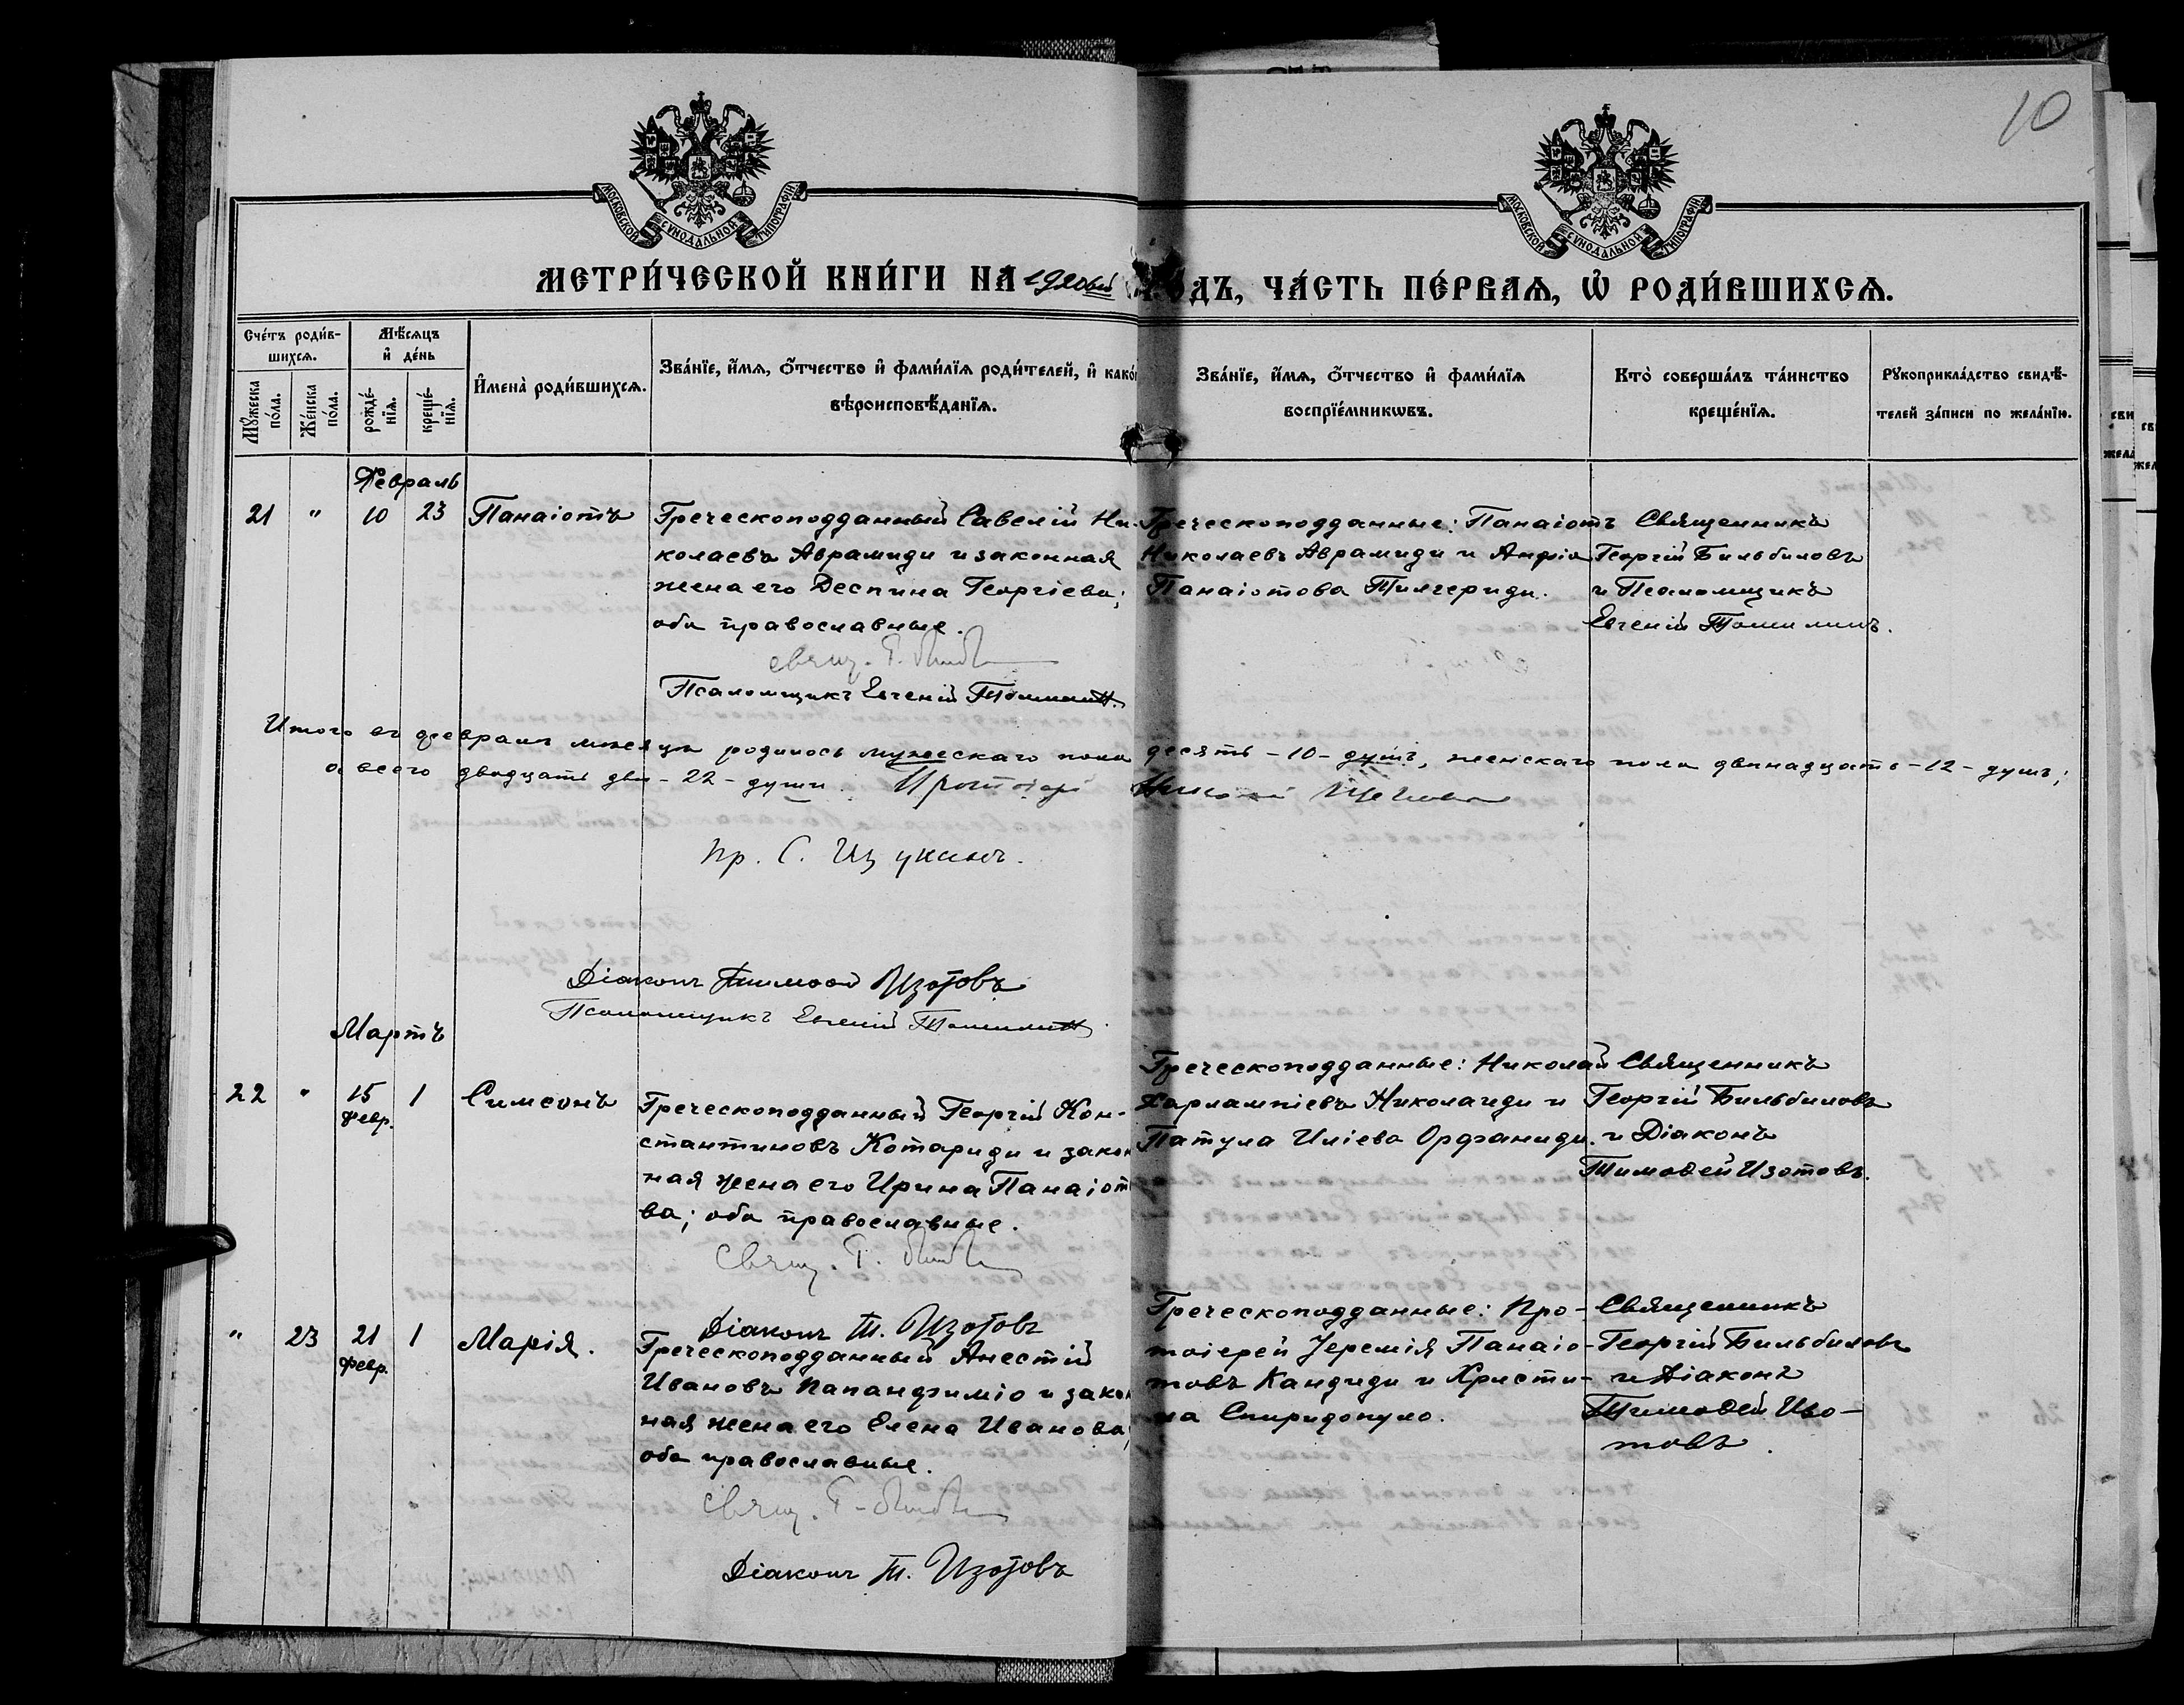 10
МОСКОВСКОЙ СУНОДАЛЬНОЙ ТИПОГРАФІИ
МОСКОВСКОЙ СУНОДАЛЬНОЙ ТИПОГРАФІИ
МЕТРИ́ЧЕСКОЙ КНИ́ГИ НА 1920ый ГОДЪ, ЧА́СТЬ ПЕ́РВАѦ, Ѽ РОДИ́ВШИХСѦ.
Сче́тъ роди́в-
шихсѧ.
Мꙋ́жеска по́ла.
Же́нска по́ла.
Мѣ́сѧцъ
и҆ де́нь
рожде́-
нїѧ.
креще́-
нїѧ.
И҆мена̀ роди́вшихсѧ.
Зва́нїе, и҆́мѧ, о҆́тчество и҆ фами́лїѧ роди́телей, и҆ како́
вѣроисповѣ́данїѧ.
Зва́нїе, и҆́мѧ, о҆́тчество и҆ фами́лїѧ
воспрїе́мникѡвъ.
Кто̀ соверша́лъ та́инство
креще́нїѧ.
Рꙋкоприкла́дство свидѣ́-
телей за́писи по жела́нїю.
Февраль
21 " 10 23 Панаіотъ
Греческоподданный Савелій Ни-
колаевъ Аврамиди и законная
жена его Деспина Георгіева;
оба православные.
Свящ. Г.
Псаломщикъ Евгеній Томилин
Греческоподданные: Панаіотъ
Николаевъ Аврамиди и Анфіа
Панаіотова Тилгериди.
Священникъ
Георгій Бильбиловъ
и Псаломщикъ
Евгеній Томилинъ.
Итого въ феврале месяце родилось мужескаго пола десять -10- душъ, женскаго пола двенадцать -12- душъ;
а всего двадцать две -22- души. Протоіерей
Пр. С. Щукинъ.
Діаконъ Тимофей Изотовъ
Псаломщикъ Евгеній Томилин
Мартъ
22 " 15 1 Симеонъ
Февр.
Греческоподданный Георгій Кон-
стантиновъ Котариди и закон
ная жена его Ирина Панаіот
ва; оба православные.
Свящ. Г.
Діаконъ Т. Изотовъ
Греческоподданные: Николай
Харлампіевъ Николаиди и
Патула Иліева Орфаниди.
Священникъ
Георгій Бильбиловъ
и Діаконъ
Тимоѳей Изотовъ.
" 23 21 1 Марія.
Февр.
Греческоподданный Анестій
Ивановъ Папанфиміо и закон
ная жена его Елена Иванова;
оба православные.
Свящ. Г.
Діаконъ Т. Изотовъ
Греческоподданные: Про-
тоіерей Іеремія Панаіо-
товъ Кандиди и Христи-
на Спиридопуло.
Священникъ
Георгій Бильбиловъ
и Діаконъ
Тимоѳей Изо-
товъ.